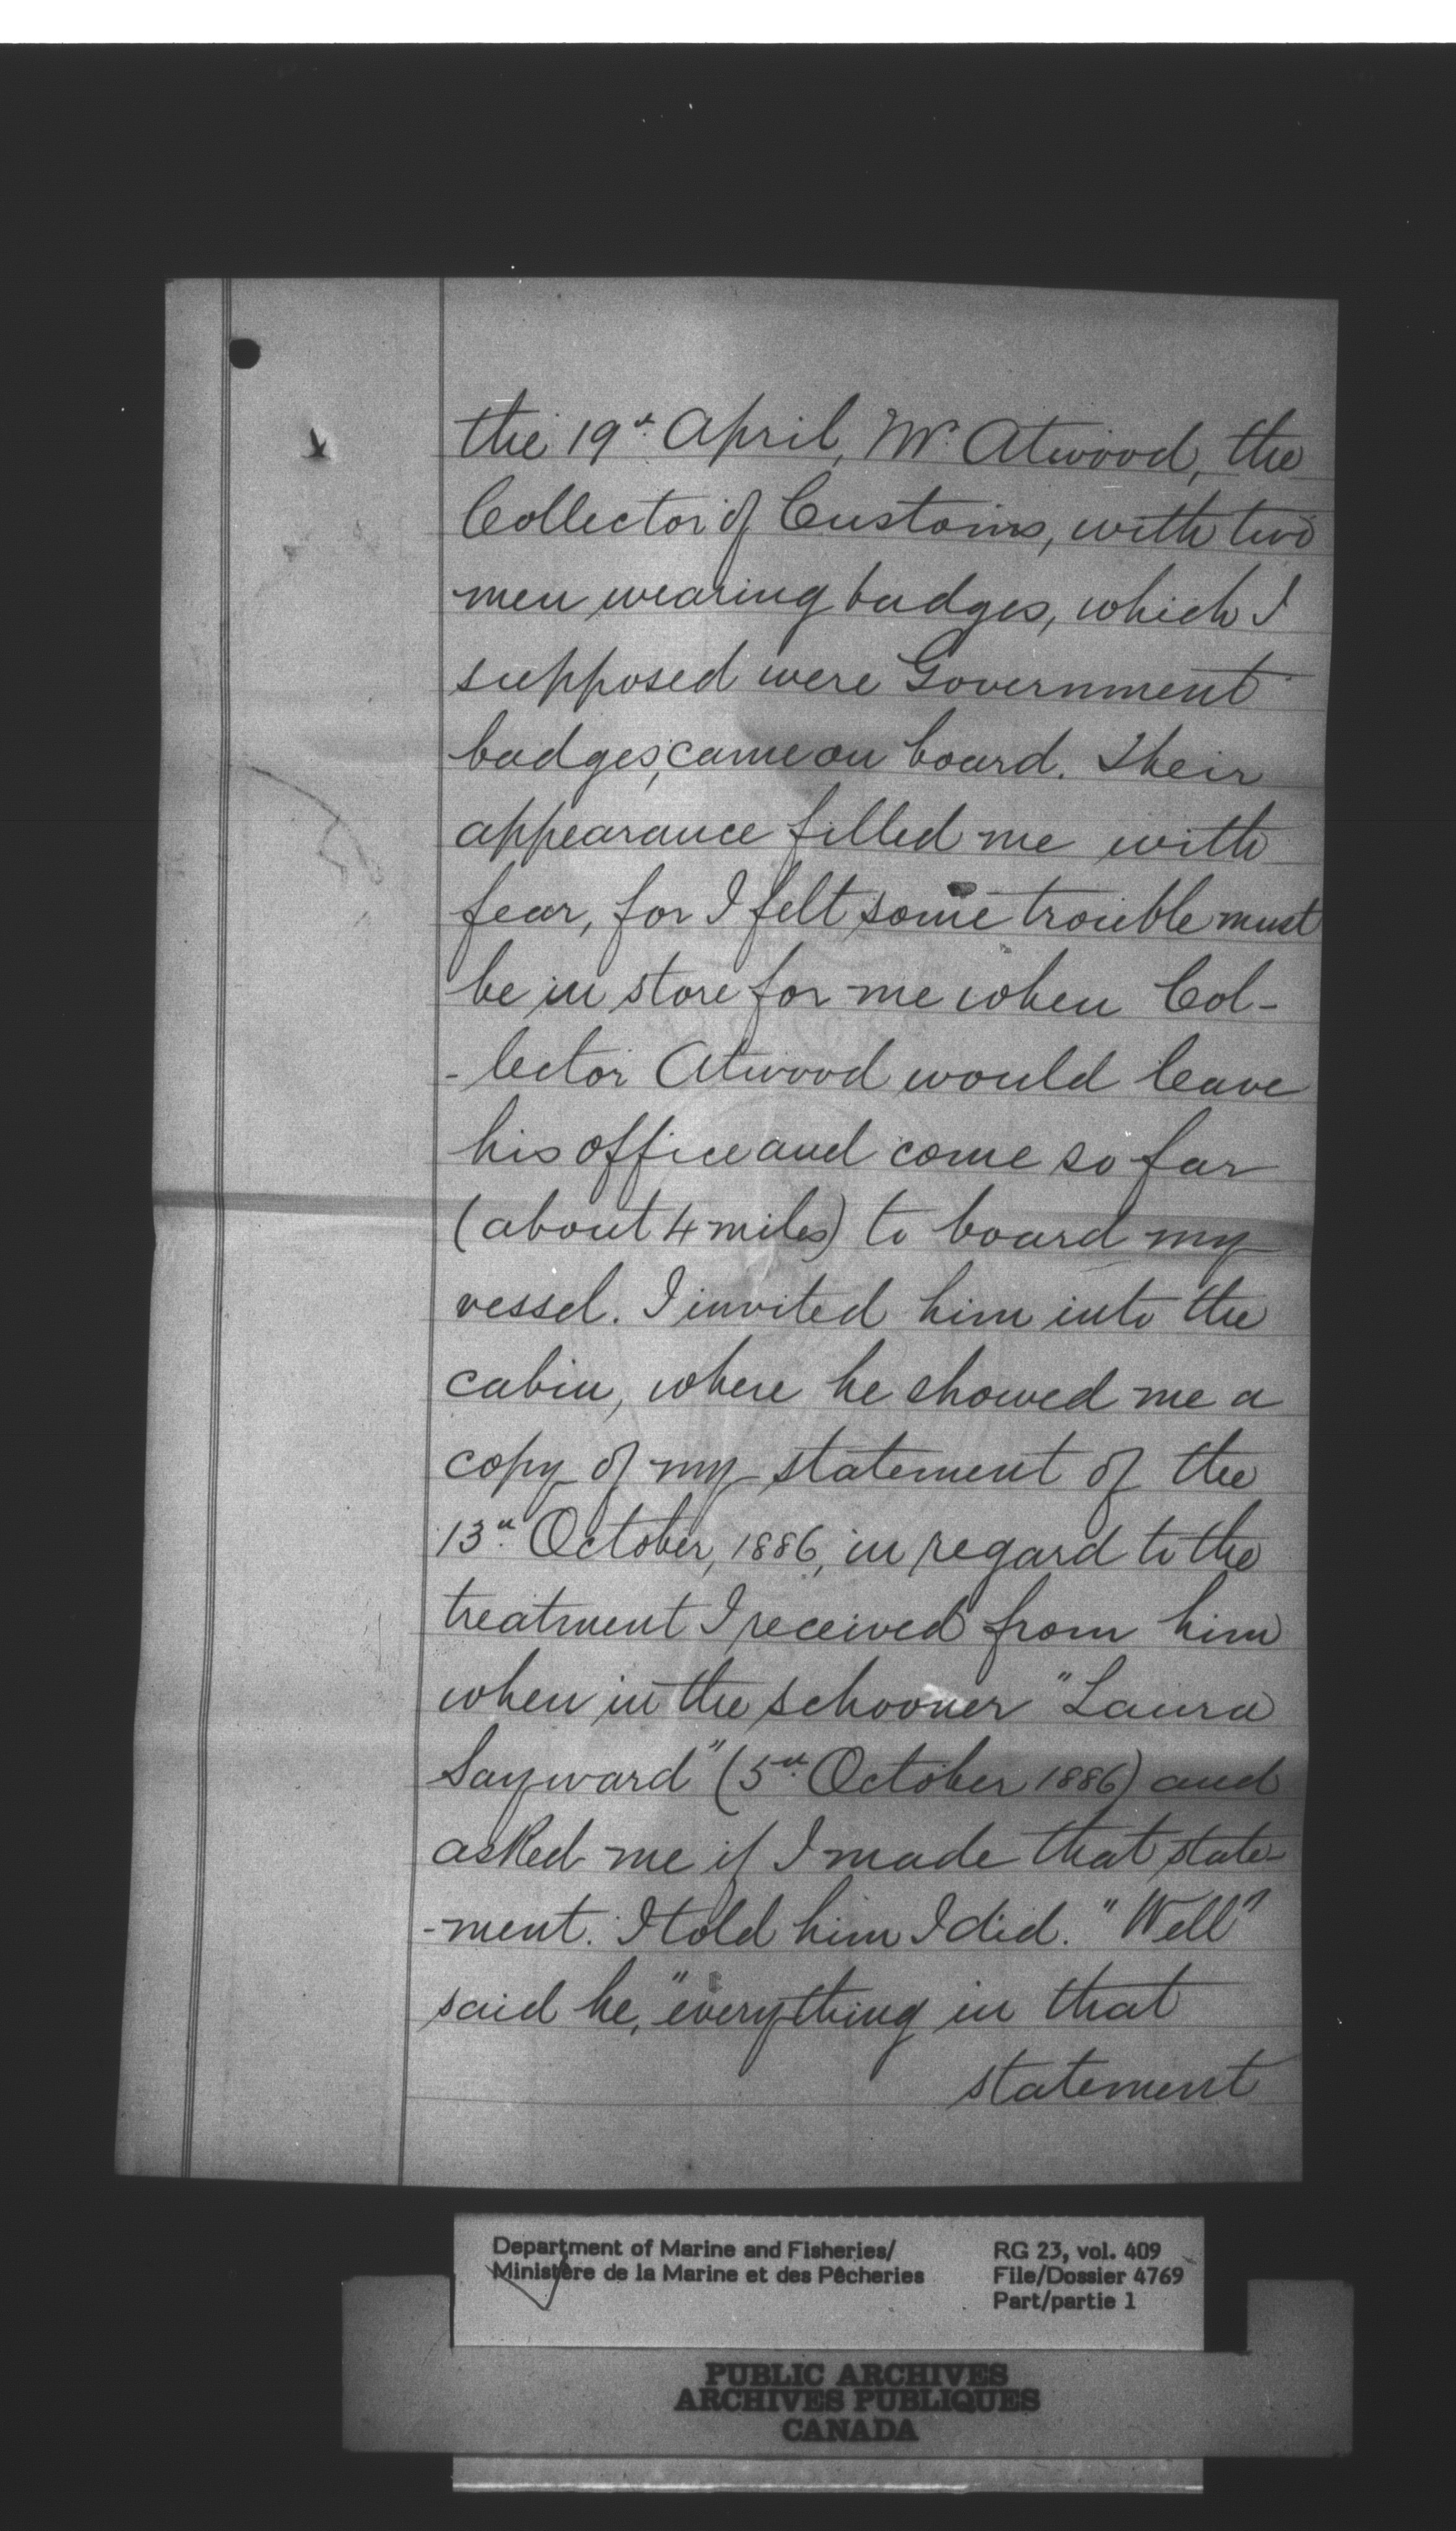 the 19th April, Mr. Atwood, the
Collector of Customs, with two
men wearing badges, which I
supposed were Government
badges, came on board. Their
appearance filled me with
fear, for I felt some trouble must
be in store for me when Col-
-lector Atwood would leave
his office and come so far
(about 4 miles) to board my
vessel. I invited him into the
cabin, where he showed me a
copy of my statement of the
13th October, 1886, in regard to the
treatment I received from him
when in the schooner "Laura
Sayward" (5th October 1886) and
asked me if I made that state-
-ment. I told him I did. "Well"
said he, "everything in that
statement
Department of Marine and Fisheries/
Ministère de la Marine et des Pêcheries
RG 23, vol. 409
File/Dossier 4769
Part/partie 1
PUBLIC ARCHIVES
ARCHIVES PUBLIQUES
CANADA